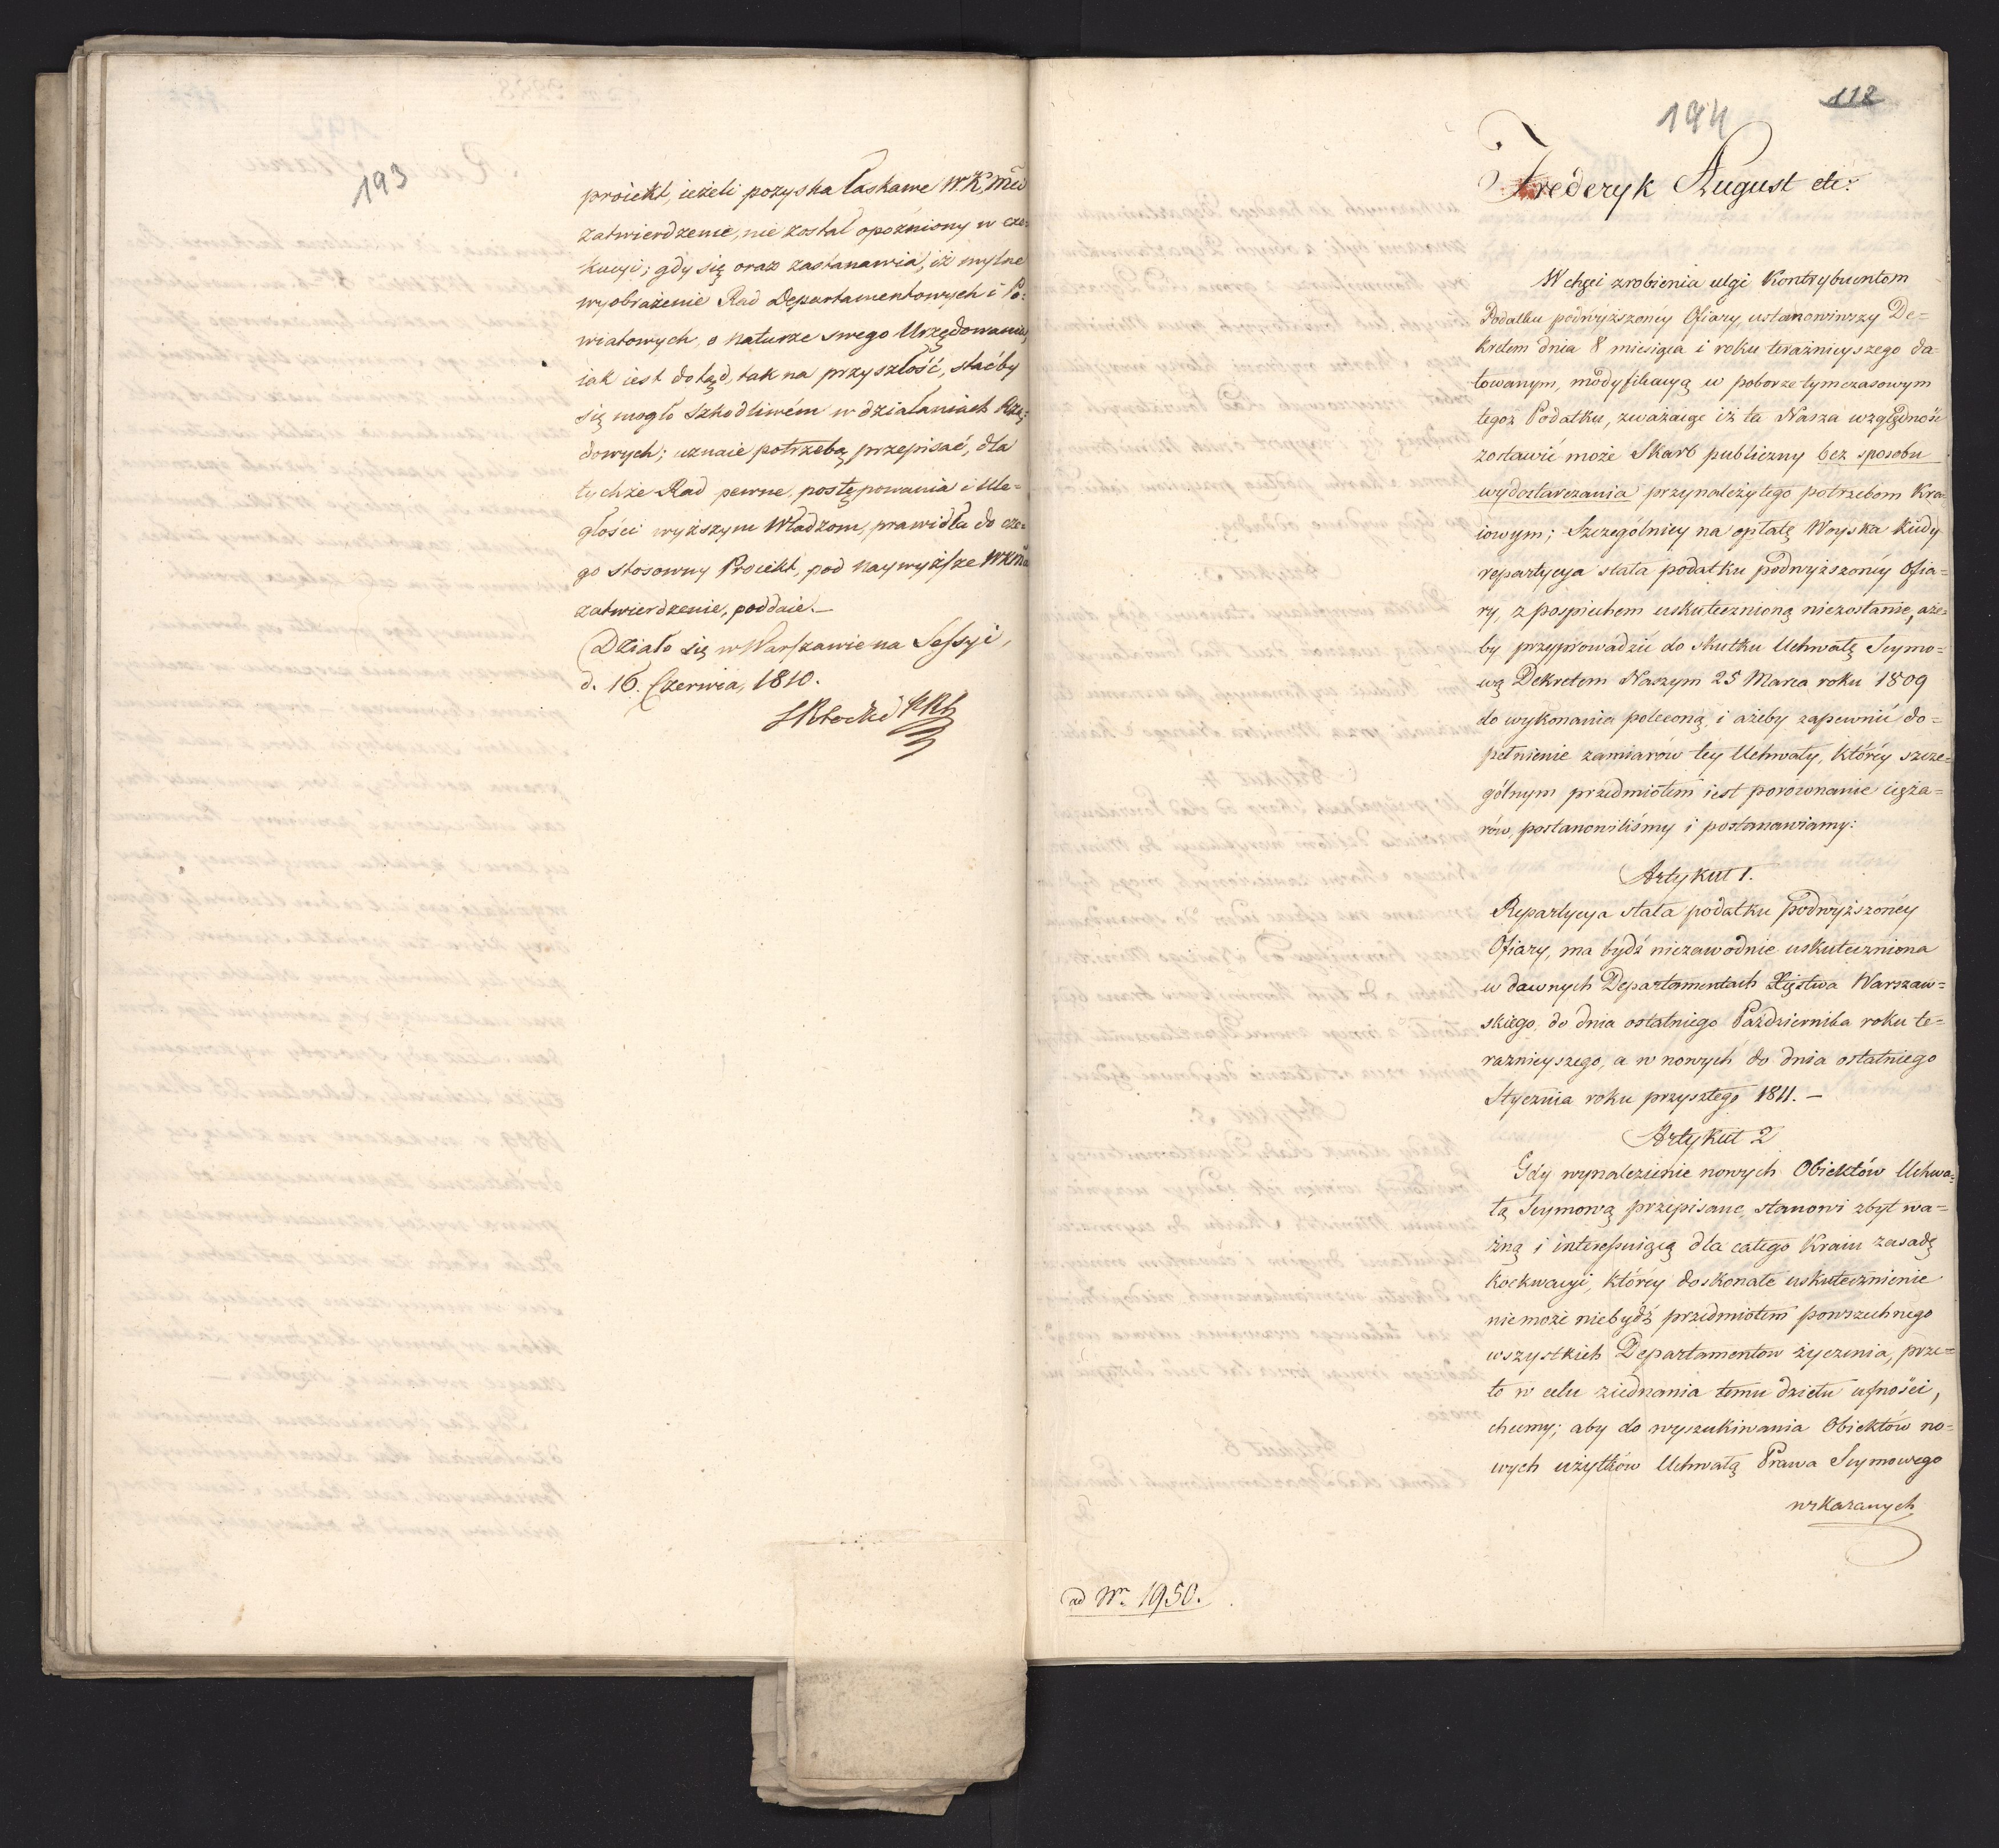 193
proiekt, ieżeli pozyska łaskawe WKMci
zatwierdzenie, nie został opoźniony w exe=
kucyi; gdy się oraz zastanawia, iż mylne
wyobrażenie Rad Departamentowych i Po=
wiatowych, o naturze swego Urzędowania,
iak iest dotąd, tak na przyszłość, staćby
się mogło szkodliwém w działaniach Rzą=
dowych; uznaie potrzebę przepisać, dla
tychże Rad pewne, postępowania i ule=
głości wyższym Władzom, prawidła do cze=
go stosowny Proiekt, pod Naywyższe WKM
zatwierdzenie, poddaie.—
Działo się w Warszawie na Sessyi,
d. 16. Czerwca, 1810.
112
194
Frederyk August etc:
W chęci zrobienia ulgi Kontrybuentom
Podatku podwyższoney Ofiary, ustanowiwszy De=
kretem dnia 8 miesiąca i roku teraźnieyszego da=
towanym, modyfikacyą w poborze tymczasowym
tegoż Podatku, zważaiąc iż ta Nasza względność
zostawić może Skarb publiczny bez sposobu
wydostarczania przynależytego potrzebom Kra=
iowym; Szczegolniey na opłatę Woyska kiedy
repartycya stała podatku podwyższonéy Ofia=
ry, z pospiechem uskutecznioną niezostanie, aże=
by przyprowadzić do skutku Uchwałę Seymo=
wą Dekretem Naszym 25 Marca roku 1809
do wykonania poleconą, i ażeby zapewnić do=
pełnienie zamiarów tey Uchwały, któréy szcze=
gólnym przedmiotem iest porównanie cięża=
rów, postanowiliśmy i postanawiamy:
Artykuł 1.
Repartycya stała podatku podwyższonéy
Ofiary, ma bydź niezawodnie uskuteczniona
w dawnych Departamentach Xięstwa Warszaw=
skiego, do dnia ostatniego Października roku te=
raznieyszego, a w nowych do dnia ostatniego
Stycznia roku przyszłego 1811. —
Artykuł 2
Gdy wynalezienie nowych Obiektów Uchwa=
łą Seymową przepisane, stanowi zbyt wa=
żną i interessuiącą dla całego Kraiu zasadę
koekwacyi, któréy doskonałe uskutecznienie
niemoże niebydź przedmiotem powszechnego
wszystkich Departamentow życzenia, prze=
to w celu ziednania temu dziełu ufności,
chcemy; aby do wyszukiwania Obiektów no=
wych użytków Uchwałą Prawa Seymowego
wskazanych
ad Nr. 1950.